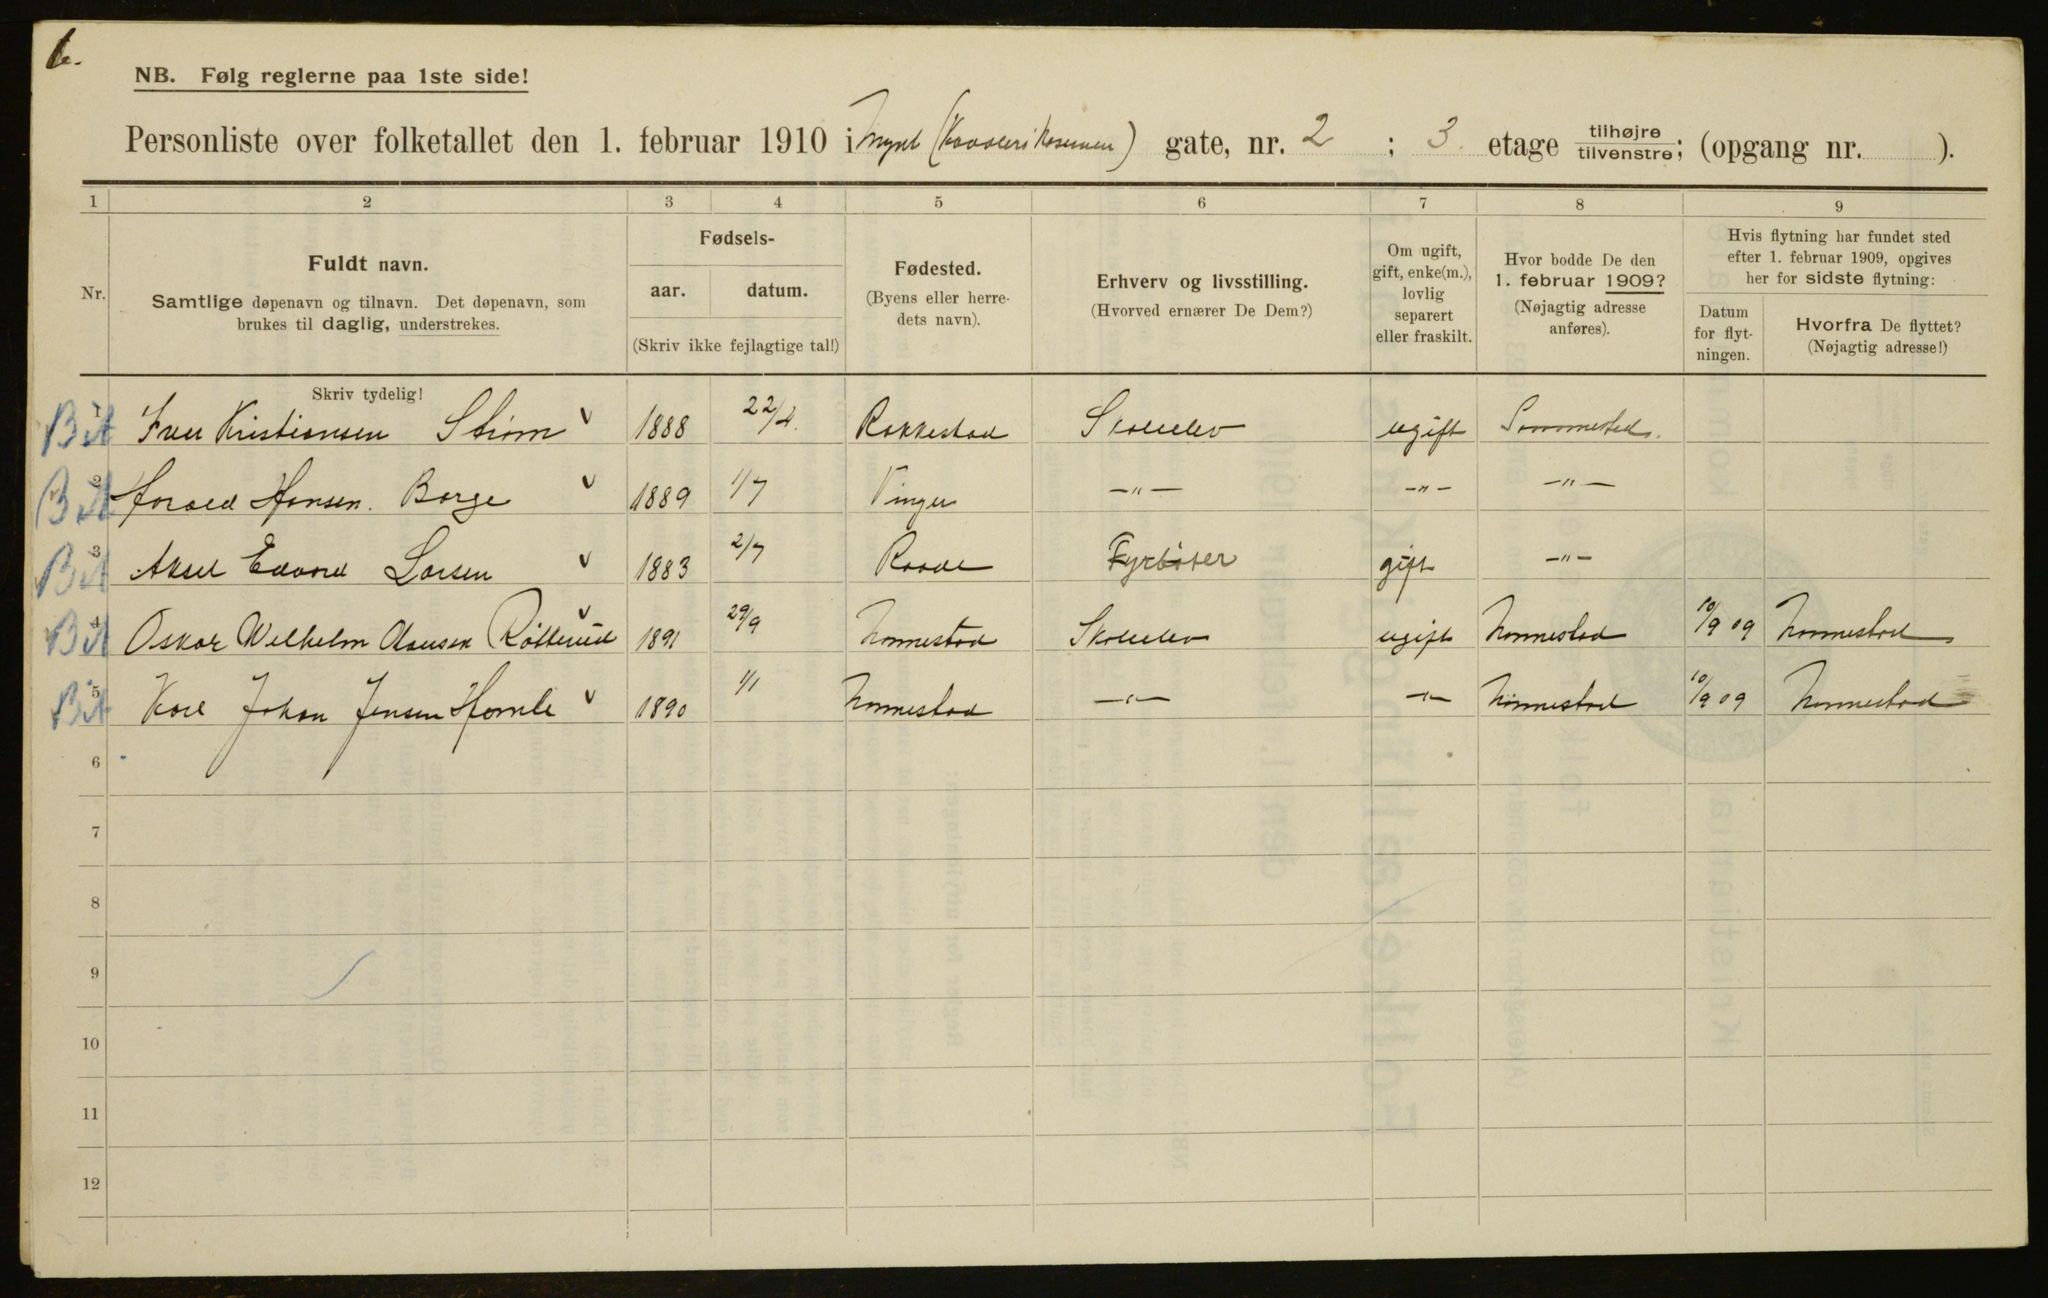 6.
NB. Følg reglerne paa 1ste side!
Personliste over folketallet den 1. februar 1910 i gate, nr. 2 ; 3. etage tilhøjre/tilvenstre; (opgang nr. ).
1 2 3 4 5 6 7 8 9
Nr.
Fuldt navn.
Samtlige døpenavn og tilnavn. Det døpenavn, som
brukes til daglig, understrekes.
Fødsels-
aar. datum.
(Skriv ikke fejlagtige tal!)
Fødested.
(Byens eller herre-
dets navn).
Erhverv og livsstilling.
(Hvorved ernærer De Dem?)
Om ugift,
gift, enke(m.),
lovlig
separert
eller fraskilt.
Hvor bodde De den
1. februar 1909?
(Nøjagtig adresse
anføres).
Hvis flytning har fundet sted
efter 1. februar 1909, opgives
her for sidste flytning:
Datum
for flyt-
ningen.
Hvorfra De flyttet?
(Nøjagtig adresse!)
Skriv tydelig!
Bit 1 Iver Kristiansen Strøm v 1888 22/4. Rakkestad Skoleelev ugift
Bit 2 Harald Hansen. Borge v 1889 1/7 Vinger —"— —"— —"—
Bit 3 Aksel Edvard Larsen v 1883 2/7 Raade Fyrbøter gift —"—
Bit 4 Oskar Wilhelm v 1891 29/9 Skoleelev ugift 10/9 09
Bit 5 Karl Johan Jensen Hornle v 1890 1/1 —"— —"— 10/9 09
6
7
8
9
10
11
12